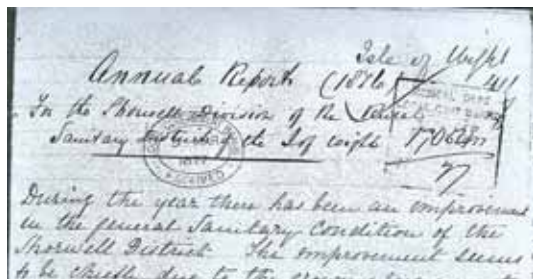 Isle of Wight
Annual Report (1876)
For the Shorwell Division of the Rural
Sanitary District of the I of Wight
RECEIVED
77
During the year there has been an improvement
in the general Sanitary Condition of the
Shorwell District The improvement seems
to be chiefly due to the